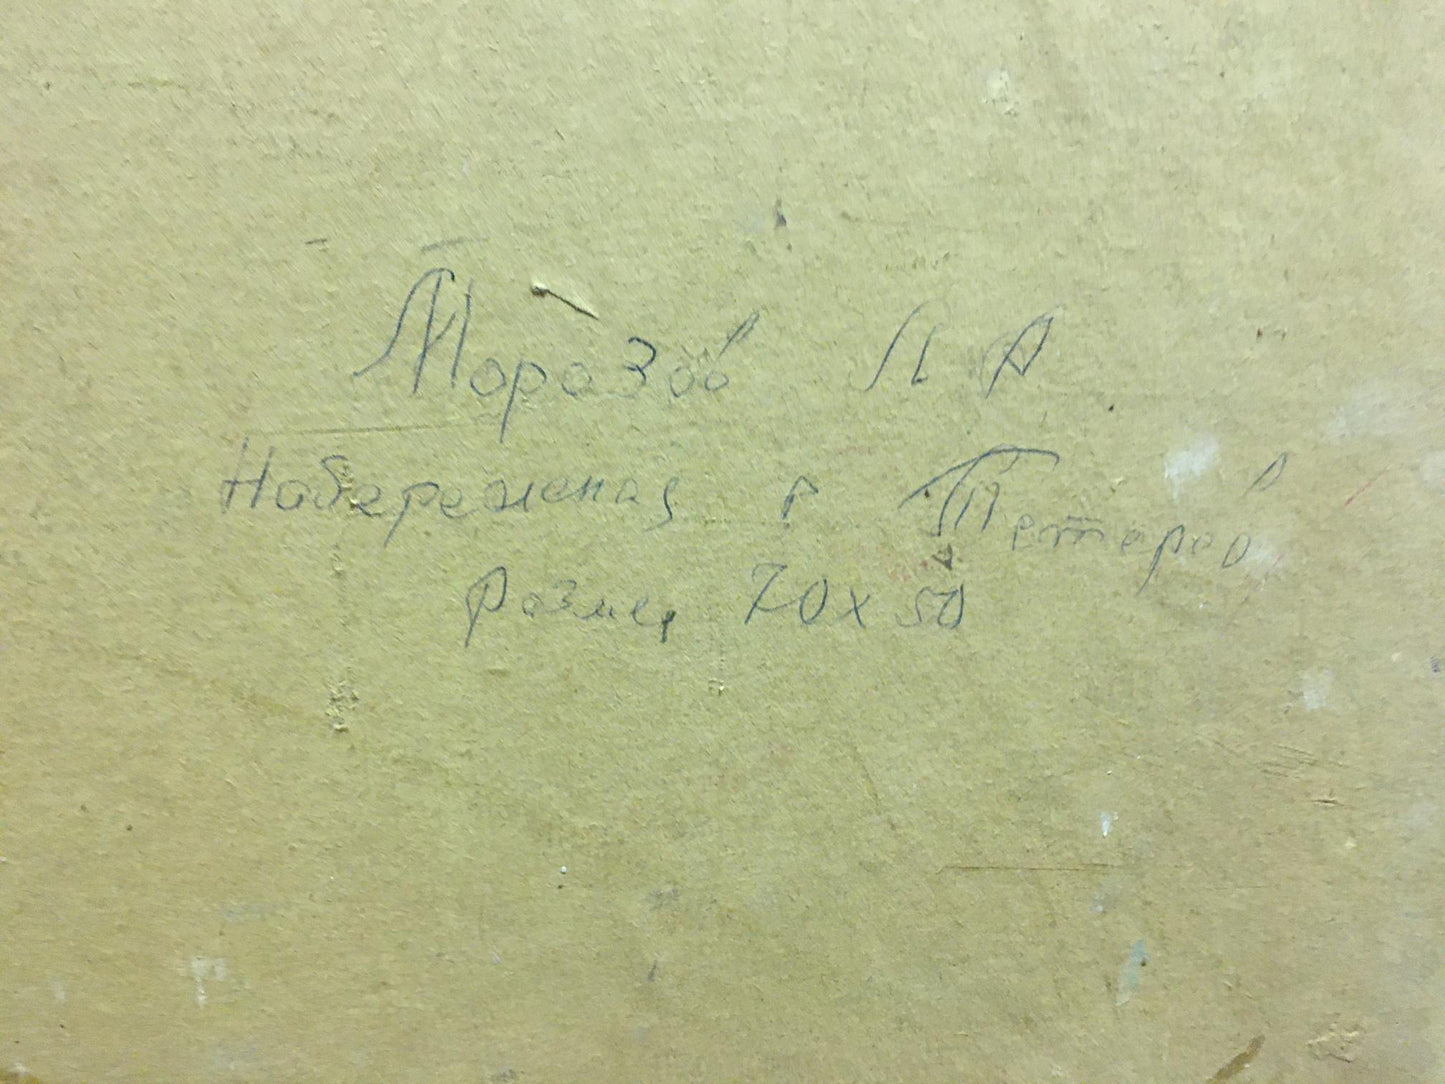 Морозов Л А
Набережная в Петергов
размер 70х50